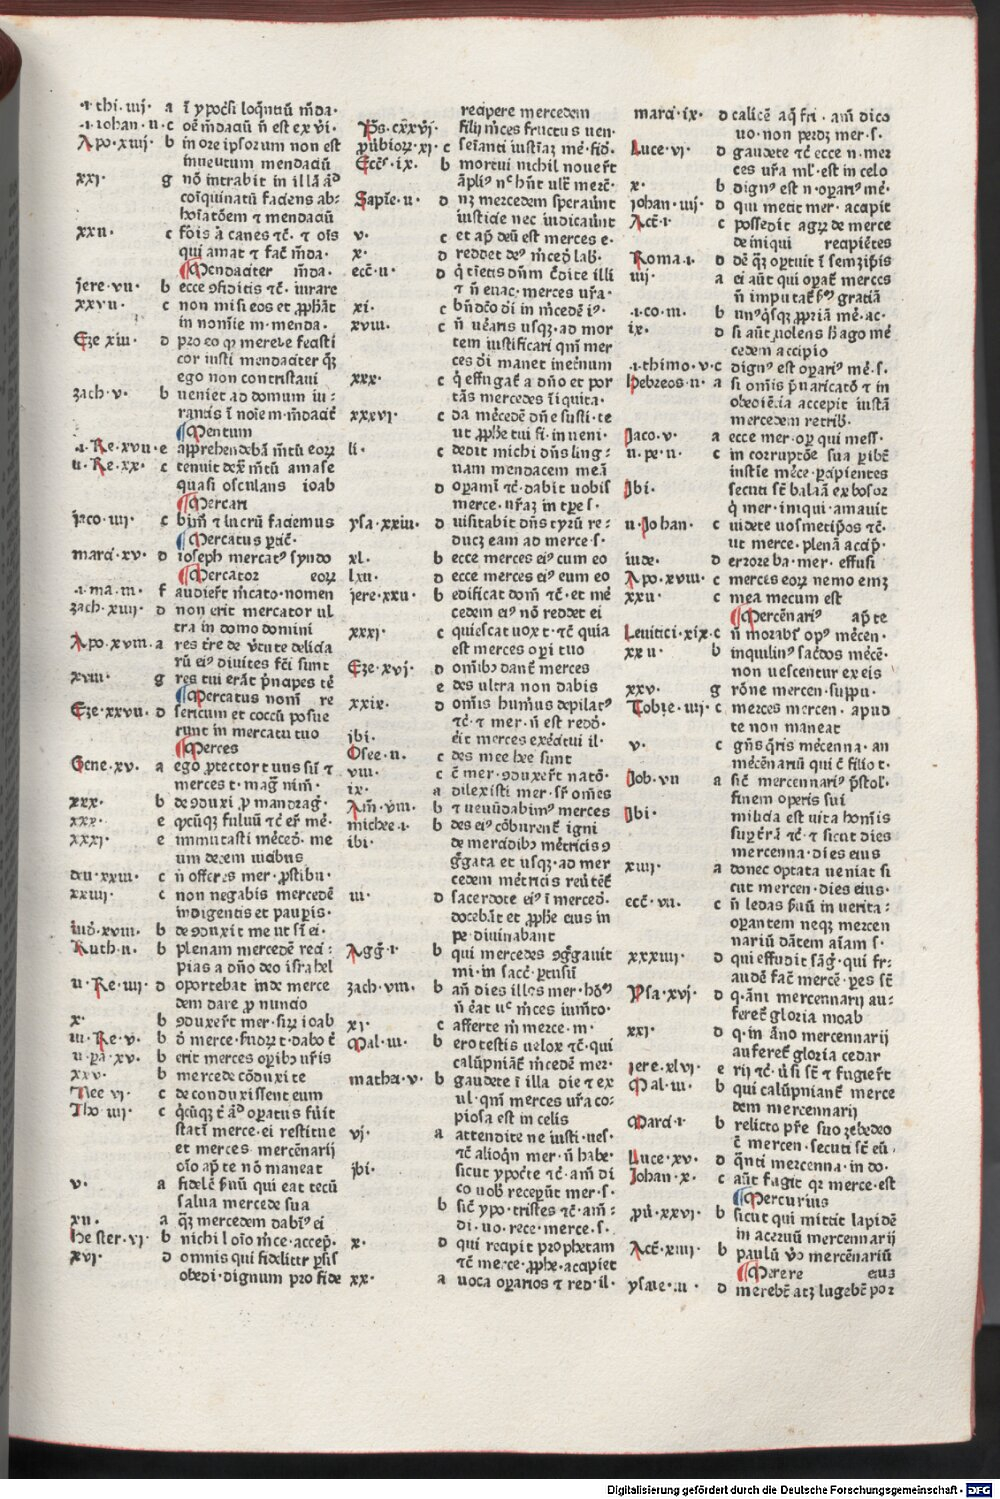 .i.thi.iiij. a ī ypocᵢsi loq̄ntiū m̄da.
.i.iohan.ii. c oē m̄daciū n̄ est ex v̄i.
Apo.xiiij. b in ore ipsorum non est
inuentum mendaciū
xxi. g nō intrabit in illā
coīquinatū faciens ab-
hoīatōem ⁊ mendaciū
xxii. c foris canes ⁊c. ⁊ oīs
qui amat ⁊ fac̄ m̄da.
Mendaciter m̄da.
jere.vii. b ecce ↄfiditis ⁊c. iurare
xxvii. c non misi eos et ꝓphāt
in nomīe m. menda.
Eze xiii. d pro eo ꝙ merere fecisti
cor iusti mendaciter q̄ꝫ
ego non contristaui
zach.v. b ueniet ad domum iu-
rantis ī noīe m. m̄daciē
Mentum
.i.Re.xvii. e apprehendebā m̄tū eoꝝ
ii.Re.xx. c tenuit m̄tū amase
quasi osculans ioab
Mercari
jaco.iiij. c ⁊ lucrū faciemus
Mercatus
marci.xv. d ioseph mercatꝰ syndo
Mercator eoꝝ
.i.ma.iii. f audier̄t m̄cato. nomen
zach.xiiij. d non erit mercator ul
tra in domo domini
Apo.xviii. a res tr̄e de v̄tute delicia
rū eiꝰ diuites fc̄i sunt
xviii. g res tui erāt p̄ncipes t̄e
Mercatus nom̄ re
Eze.xxvii. d sericum et coccū posue
runt in mercatu tuo
Merces
Gene.xv. a ego ꝓtector tuus sū ⁊
merces t. maḡ nim̄.
xxx. b de ↄduxi ꝓ mandrag̊.
xxx. e qcūqꝫ fuluū ⁊c er̄ mē.
xxxi. e immutasti mēcedē. me
um decem uicibus
deu.xxiii. c n̄ offeres mer. ꝓstibu.
xxiiii. c non negabis mercedē
indigentis et paupis.
iud.xviii. b de ↄduxit me ut sī ei.
Ruth.ii. b plenam mercedē reci-
pias a dn̄o deo israhel
ii.Re.iiij. d oportebat inde merce
dem dare ꝓ nuncio
x. b ↄduxer̄t mer. siꝝ ioab
iii.Re.v. b
ii.pā.xv. b erit merces opibꝰ ur̄is
xxv. b mercede cōduxi te
Nee vi. c de conduxissent eum
Tho.iiij. c
statī merce. ei restitue
et merces mercēnarij
oīo apᷣ te nō maneat
v. a fidelē uū qui eat tecū
salua mercede sua
xii. a q̄ꝫ mercedem dabīꝰ ei
hester.vi. b nichil oīo m̄ce. accep̄.
xvi. d omnis qui fidelit̄ p̄sis
obedi. dignum pro fide
recipere mercedem
Ps̄.cxxvi. filij m̄ces fructus uen.
ꝓubioꝝ.xi. c seīanti iustiaꝫ mē. fid̄.
Ecc̄s.ix. b mortui nichil nouer̄t
āpliꝰ nᶜ hn̄t ult̄ merc̄.
Sapīe.ii. d nꝫ mercedem sperauīt
iusticie nec iudicauīt
v. c et ap̄ deū est merces e.
x. d reddet deꝰ m̄cedē lab̄.
ecc̄.ii. d q̄ timetis dn̄m c̄dite illi
⁊ n̄ euac̄. merces ur̄a.
xi. c bn̄dc̄o di in m̄cede iꝰ.
xviii. c n̄ usqꝫ ad mor
tem iustificari qm̄ mer
ces di manet inet̄num
xxx. c q̄ effugat̄ a dn̄o et por
tās mercedes iniquita.
xxxvi. c da mēcedē dn̄e sustī. te
ut ꝓphe tui fi. inueni.
li. c dedit michi dn̄s ling-
uam mendacem meā
d opami ⁊c. dabit uobis
merce. ur̄aꝫ in tp̄e s.
ysa.xxiii. d uisitabit dn̄s tyrū re-
ducꝫ eam ad merce. s.
xl. b ecce merces eiꝰ cum eo
lxii. d ecce merces eiꝰ cum eo
jere.xxii. b edificat dom̄ ⁊c. et mē
cedem eiꝰ nō reddet ei
xxxi. c quiescat uox t. ⁊c quia
est merces opi tuo
Eze.xvi. d om̄ibꝰ dant̄ merces
e des ultra non dabis
xxix. d om̄is hum̄us depilatꝰ
⁊c. ⁊ mer. n̄ est redd̄.
jbi. erit merces exēcitui il.
Osee.ii. c des mee hee sunt
viii. c ē mer. ↄduxer̄t natō.
ix. a dilexisti mer. sr̄ om̄es
Am̄.viii. b ⁊ ueūdabimꝰ merces
michee.i. b des eiꝰ cōburent̄ igni
ibi. de mercedibꝰ mēt̄icis ↄ
g̊gata et usqꝫ ad mer
cedem mēt̄icis reūtēt̄
iii. d sacerdote eiꝰ ī merced.
docebāt et ꝓphe eius in
pe. diuinabant
Agḡ.i. b qui mercedes ↄg̊gauit
mi. in sacc̄. ptusū
zach.viii. b an̄ dies illos mer. hōꝰ
n̄ ēat uᶜ m̄ces iumto.
xi. c afferte m̄ merce. m.
Mal.iii. b ero testis uelox ⁊c. qui
calūpniāt̄ m̄cedē mer.
mathei.v. b gaudete ī illa die ⁊ ex
ul. qm̄ merces ur̄a co-
piosa est in celis
vi. a attendite ne iusti. ues.
⁊c alioqn̄ mer. n̄ habe.
jbi. sicut ypoc̄te ⁊c. am̄ di
co uob̄ recepūt mer. s.
b sic̄ ypo. tristes ⁊c. am̄-
di. uo. rece. merce. s.
x. d qui recipit prophetam
⁊c merce. ꝓphe. accipiet
xx. a uoca op̄arios ⁊ red. il.
marci.ix. d calicē aq̄ fri. am̄ dico
uo. non perdꝫ mer. s.
Luce.vi. d gaudete ⁊c ecce n. mer
ces ur̄a ml̄. est in celo
x. b dignꝰ est n opariꝰ mē.
johan.iiij. d qui metit mer. accipit
Act̄.i. c possedit agꝝ de merce
de iniqui recipiētes
Roma.i. d dē q̄ꝫ oportuit ī semetip̄is
iiij. a ei aūt qui opat̄ merces
n̄ imputat̄ gratiā
.i.co.iii. b unꝰq̄sqꝫ ꝓpriā mē. ac.
ix. d si aūt uolens h̄ ago mē
cedem accipio
.i.thimo.v. c dignꝰ est opariꝰ mē. s.
Hebreos.ii. a si om̄is p̄uaricatō ⁊ in
obediēcia accepit iustā
mercedem retrib̄.
Jaco.v. a ecce mer. oꝑ qui mess̄.
ii.pe.ii. c in corruptōe sua pibūt
iustie mēce. pcipientes
Jbi. secuti st̄ balaā ex bosor
q̄ mer. iniqui. amauit
ii.Johan. c uidete uosmetip̄os ⁊c.
ut merce. plenā accip̄.
iude. d errore ba. mer. effusi
Apo.xviii. c merces eoꝝ nemo emꝫ
xxii. c mea mecum est
Mercēnariꝰ ap̄ te
Leuitici.xix. c n̄ morabr̄ opꝰ mēcen.
xxii. b inquilinꝰ sac̄dos mēcē.
non uescentur ex eis
xxv. g rōne mercen. suppu.
Tobie.iiij. c merces mercen. apud
te non maneat
v. c gn̄s q̄ris mēcenna. an
mēcēnariū qui c̄ filio t.
Job.vii a sic̄ mercennariꝰ p̄stol̄.
finem operis sui
Jbi. milicia est uita hom̄is
sup t̄rā ⁊c. ⁊ sicut dies
mercenna. dies eius
xiiij. a donec optata ueniat si
cut mercen. dies eius.
ecc̄.vii. c n̄ ledas uū in uerita-
opantem neqꝫ mercen
nariū dātem aīam s.
xxxiiij. d qui effudit sāg̊. qui fr-
audē fac̄ mercē. pes st̄
Ysa.xvi. d q. āni mercennarij au-
feret̄ gloria moab
xxi. d q. in āno mercennarij
auferet̄ gloria cedar
jere.xlvi. e rij ⁊c. ūsi st̄ ⁊ fugier̄t
Mal.iii. b qui calūpniant̄ merce
dem mercennarij
Marci.i. b relicto p̄re suo zebedeo
c̄ mercen. secuti st̄ eū.
Luce.xv. d q̄nti mercenna. in do.
Johan.x. c aūt fugit qꝛ merce. est
Mercurius
ꝓū.xxvi. b sicut qui mittit lapidē
in aceruū mercennarij
Act̄.xiiij. b paulū v̄o mercēnariū
Merere eius
ysaie.ii. d merebt̄ atꝫ lugebt̄ por
Digitalisierung gefördert durch die Deutsche Forschungsgemeinschaft - DFG